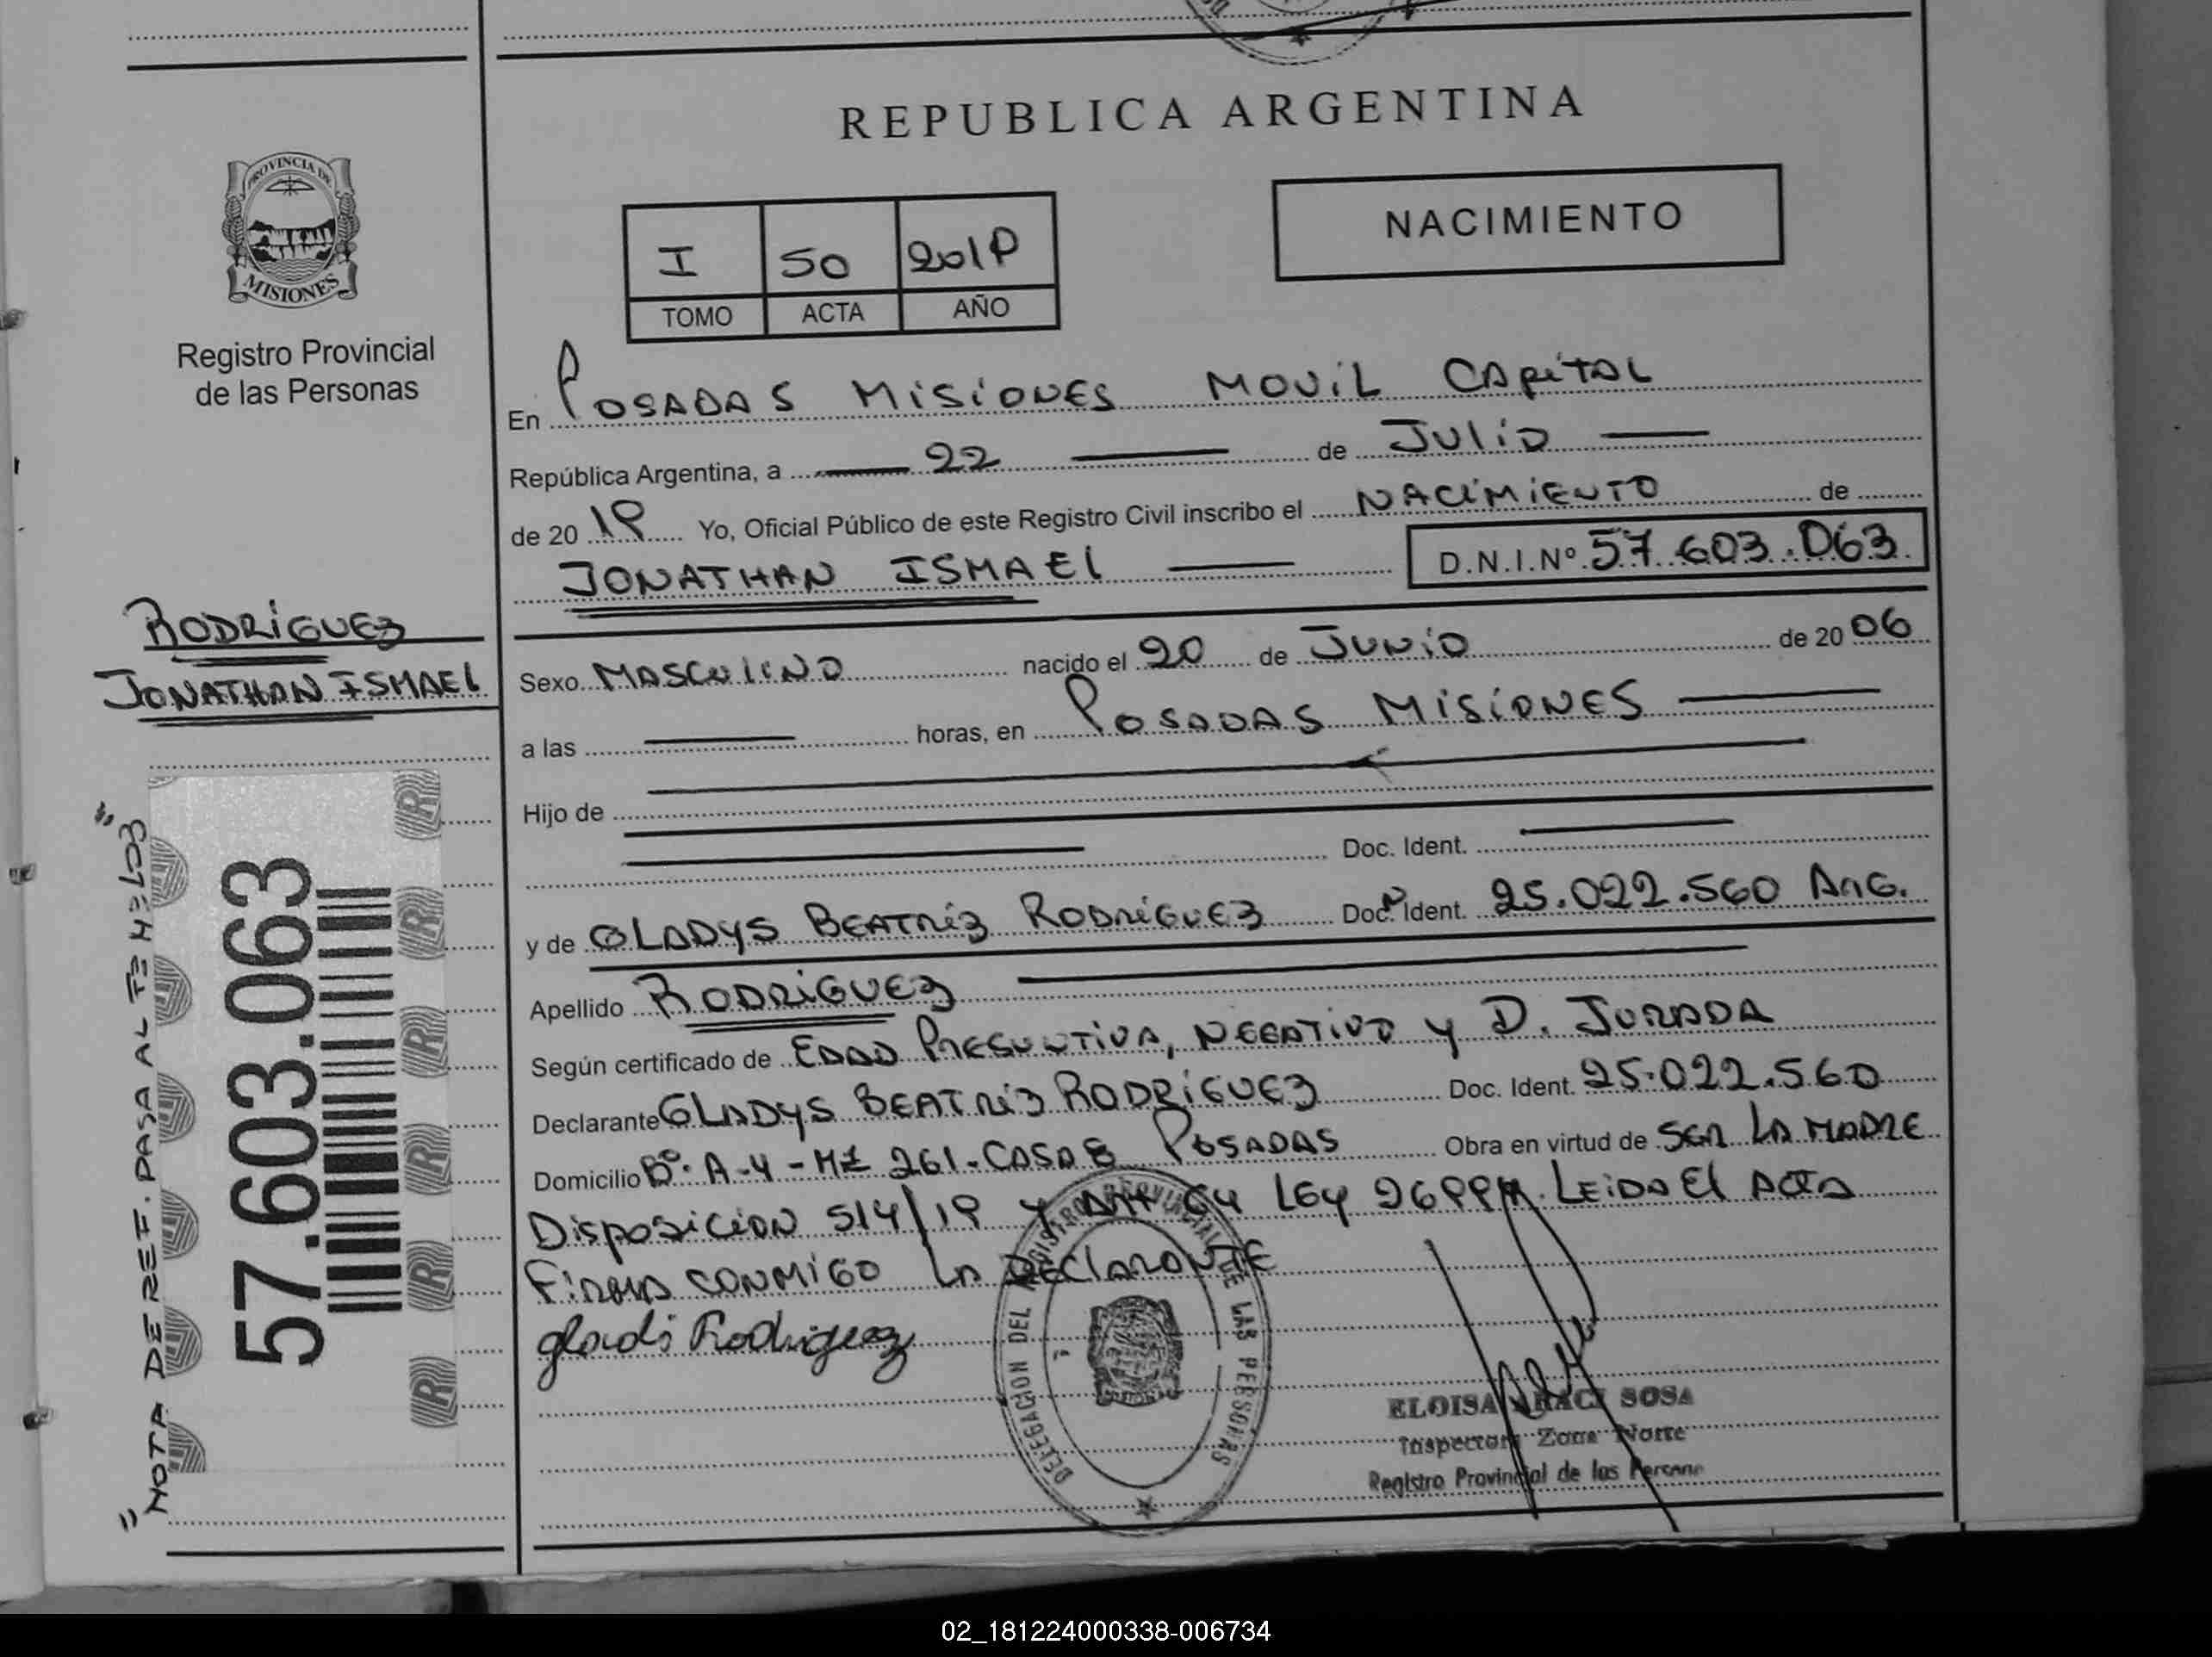 REPUBLICA ARGENTINA
NACIMIENTO
I 50 2019
TOMO ACTA AÑO
PROVINCIA DE
MISIONES
Registro Provincial
de las Personas
En POSADAS MISIONES MOVIL CAPITAL
República Argentina, a 22 de JULIO
de 20 19 Yo, Oficial Público de este Registro Civil inscribo el NACIMIENTO de
JONATHAN ISMAEL D.N.I.Nº 57.603.063
RODRIGUEZ
JONATHAN ISMAEL
Sexo MASCULINO nacido el 20 de JUNIO de 20 06
a las horas, en POSADAS MISIONES
Hijo de
Doc. Ident.
y de GLADYS BEATRIZ RODRIGUEZ Doc. Ident. 25.022.560 ARG.
Apellido RODRIGUEZ
Según certificado de EDAD PRESUNTIVA, NEGATIVO Y D. JURADA
Declarante GLADYS BEATRIZ RODRIGUEZ Doc. Ident. 25.022.560
Domicilio Bº. A-4 - MZ 261. CASA 8 POSADAS Obra en virtud de SER LA MADRE
DISPOSICION 514/19 Y ART 64 LEY 26994. LEIDA EL ACTA
FIRMA CONMIGO LA DECLARANTE
gladi Rodriguez
DELEGACION DEL REGISTRO PROVINCIAL DE LAS PERSONAS
ELOISA ARACI SOSA
Inspectora Zona Norte
Registro Provincial de las Persona
57.603.063
R
R
R
R
R
R
"NOTA DE REF. PASA AL Fº Nº
02_181224000338-006734